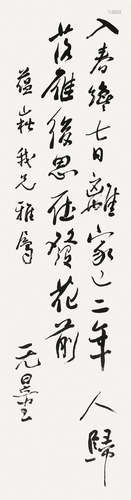 入春纔七日離家已二年人歸
落雁後思在發花前
蘊我兄雅屬
无